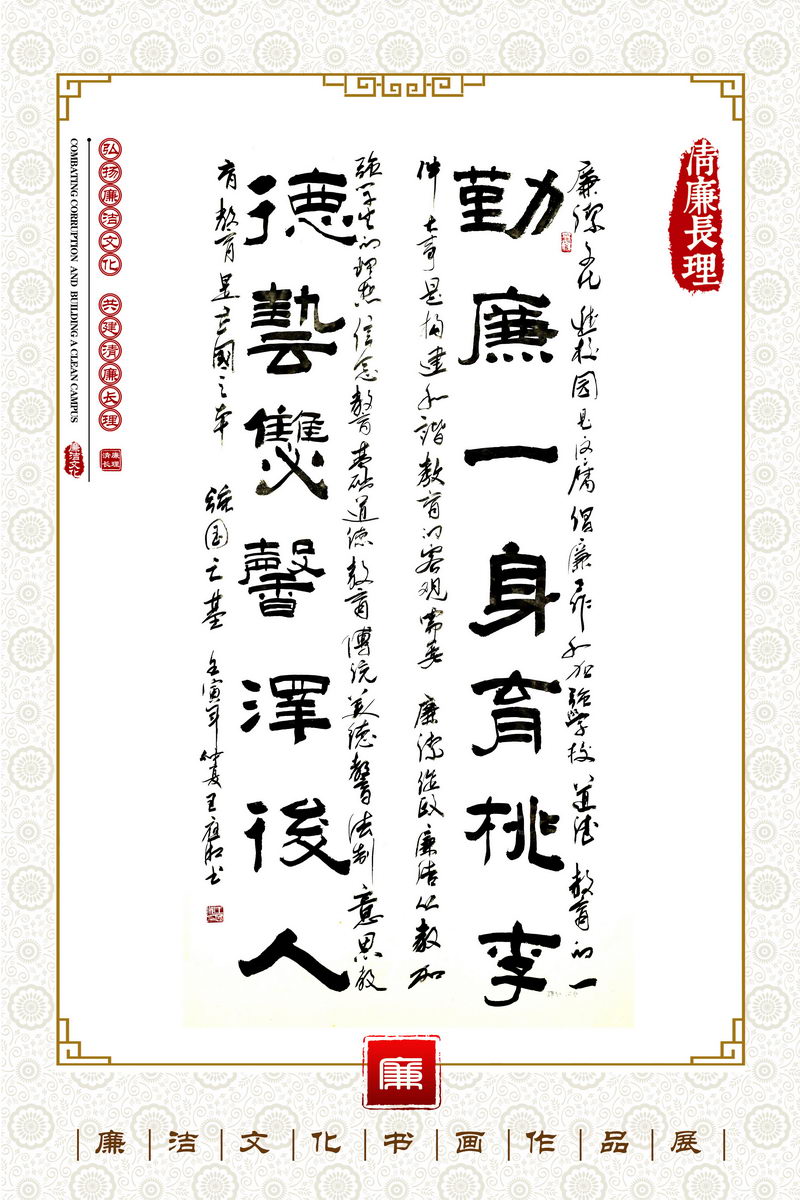 清廉長理
廉潔文化進校园是反腐倡廉工作和加強學校道德教育的一
勤廉一身育桃李
件大事是构建和諧教育的客观需要 廉潔從政廉洁从教加
強学生的理想信念教育基础道德教育傳统美德教育法制意思教
德藝雙馨澤後人
育教育是立國之本 強国之基 壬寅年仲夏王
弘扬廉洁文化 共建清廉长理
COMBATING CORRUPTION AND BUILDING A CLEAN CAMPUS
廉洁文化
廉
廉洁文化书画作品展